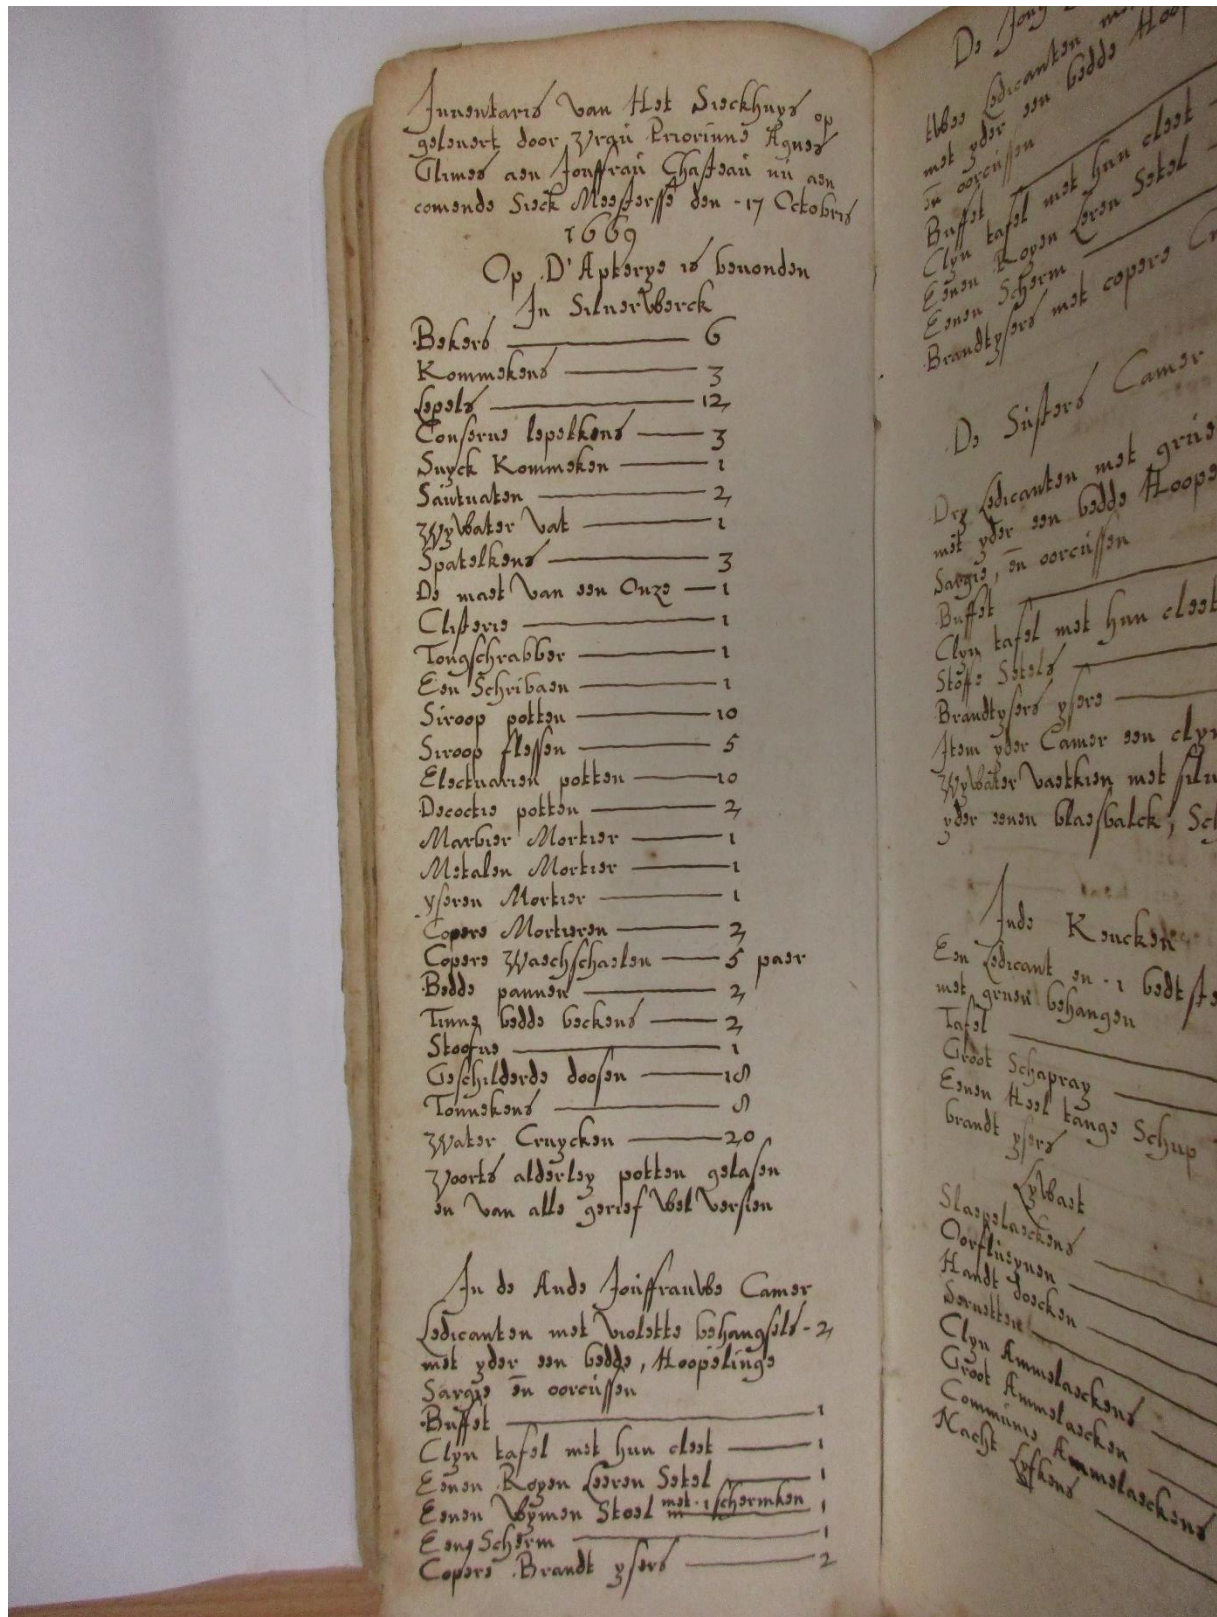 Inuentaris van Het Sieckhuys op
geleuert door Vrau Priorinne Agnes
Glimes aen Jouffrau Chasteau nu aen
comende Sieck Meesterssе den - 17 Octobris
1669
Op D'Apterye is beuonden
In Siluerwerck
Bekers 6
Kommekens 3
Lepels 12
Conserue lepelkens 3
Suyck Kommeken 1
Sautuaten 2
Wywater vat 1
Spatelkens 3
De maet van een Onze 1
Clisterie 1
Tongschrabber 1
Een Schribaen 1
Siroop potten 10
Siroop flessen 5
Electuarien potten 10
Decoctie potten 2
Marbier Mortier 1
Metalen Mortier 1
yseren Mortier 1
Copere Mortieren 2
Copere Waechschaelen 5 paer
Bedde pannen 2
Tinne bedde beckens 2
Stoofue 1
Geschilderde doosen 18
Tonnekens 8
Water Cruycken 20
Voorts alderley potten gelasen
en van alle gerief wel versien
In de Aude Jouffrauwe Camer
Ledicanten met violette behangsels - 2
met yder een bedde, Hoopelinge
Sargie en oorcussen
Buffet 1
Clyn tafel met hun cleet 1
Eenen Royen Leeren Setel 1
Eenen Wymen Stoel met - 1 schermken 1
Eene Scherm 1
Copere Brandt ysers 2
De Jong
twee Ledicanten
met yder een bedde
en oorcussen
Buffet
Clyn tafel met hun cleet
Eenen Royen Leren Setel
Eenen Scherm
Brandtysers met copere
De Susters Camer
Dry Ledicanten met
met yder een bedde
Sargie, en oorcussen
Buffet
Clyn tafel met hun cleet
Stoffe Setels
Brandtysers ysere
Item yder Camer een
Wywater vaetkien met
yder eenen blaesbalck,
Inde Keucken
Een Ledicant en - 1
met gruen behangen
Tafel
Groot Schapray
Eenen Heel tange Schup
brandt ysers
Lywaet
Slaepelaeckens
Oorfluynen
Handt doecken
Seruetten
Clyn Ammelaeckens
Groot Ammelaecken
Commune Ammelaeckens
Nacht Lyfkens